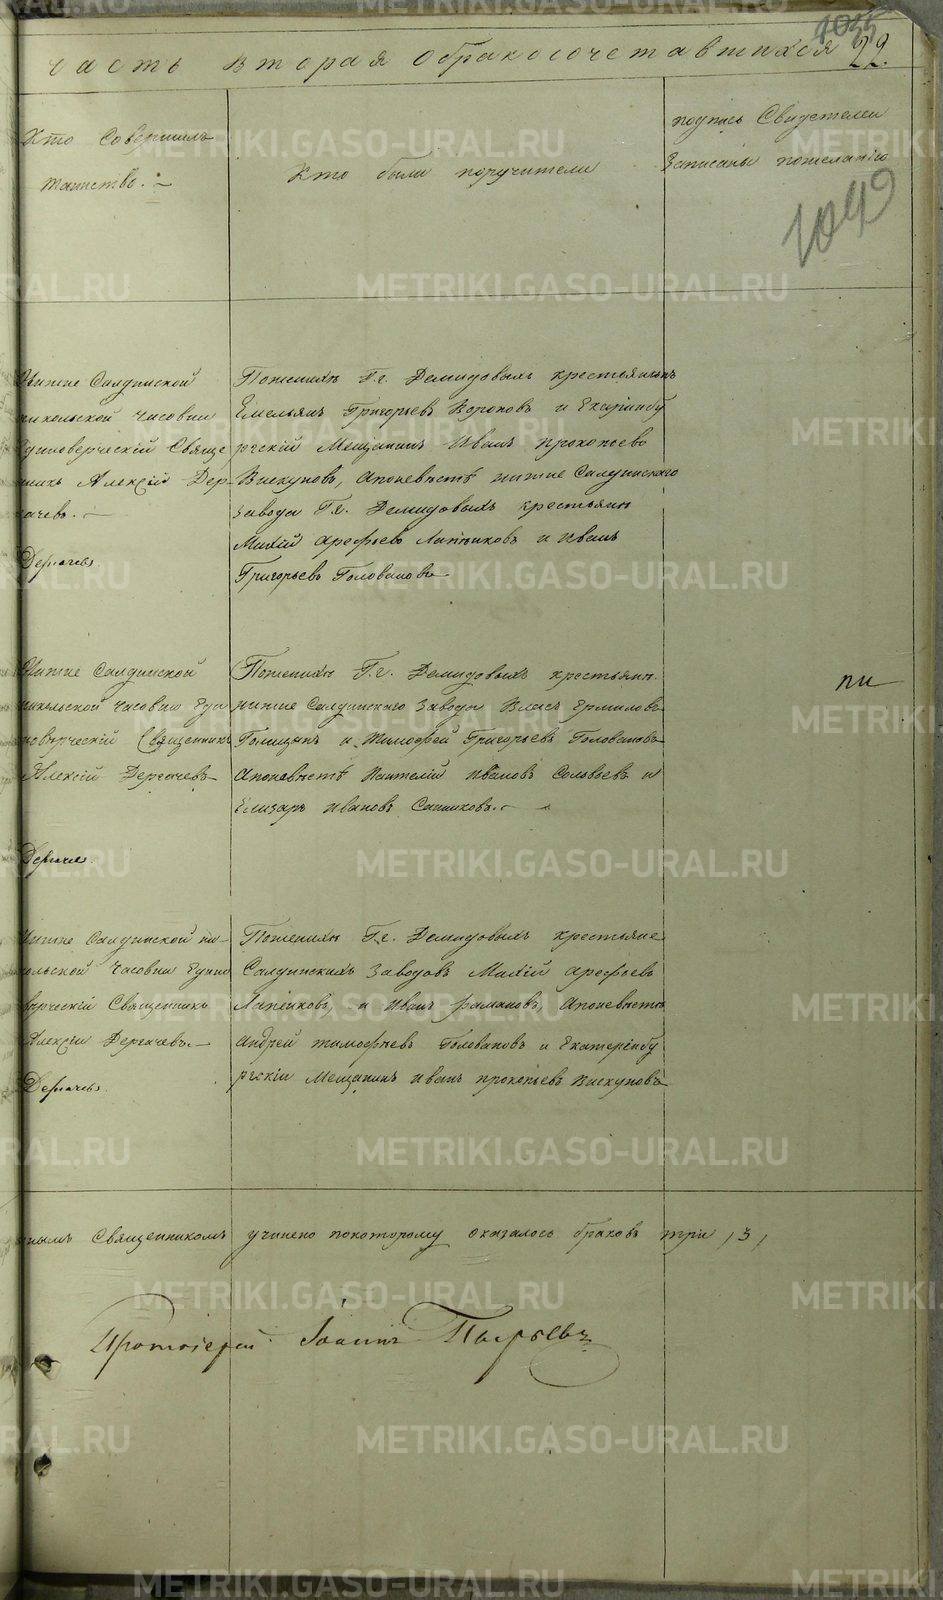 1035
часть вторая обракосочетавшихся 22.
Кто Совершилъ
таинство.
Кто были поручители
подпись Свидетелей
Записаны пожеланію
1049
Нижне Салдинской
никольской часовни
Единоверческій Свяще
никъ Алексій Дер-
гачевъ.
Дергачевъ.
Поженихѣ Г.г. Демидовыхъ крестьянинъ
Емельянъ Григорьевъ Вороновъ и Екатринбу
ргскій Мещанинъ Иванъ Прокопьевъ
Вискуновъ, апоневѣстѣ нижне Салдинскаго
завода Г.г. Демидовыхъ крестьяне
Михій арефьевъ Лапенковъ и Иванъ
Григорьевъ Головановъ
Нижне Салдинской
никольской часовни Еди
новѣрческій Священникъ
Алексій Дергачевъ
Дергачев.
Поженихѣ Г.г. Демидовыхъ крестьяне.
нижне Салдинскаго завода Власъ Ермиловъ
Голицынъ и Тимофей Григорьевъ Головановъ
апоневѣстѣ Пантелій Ивановъ Соловьевъ и
Елизаръ Ивановъ Санниковъ.
пи
Нижне Салдинской ни-
кольской часовни Едино
вѣрческій Священникъ
Алексій Дергачевъ.
Дергачевъ.
Поженихѣ Г.г. Демидовыхъ крестьяне
Салдинскихъ заводовъ Михій арефьевъ
Лапенковъ, и Иванъ апоневѣстѣ
андрей тимофеевъ Головановъ и Екатерінбу
ргскіи Мещанинъ Иванъ прокопьевъ Вискуновъ
Священникомъ учинено покоторому оказалось браковъ три, 3,
Протоіерей Іоаннъ Пырьевъ
METRIKI.GASO-URAL.RU